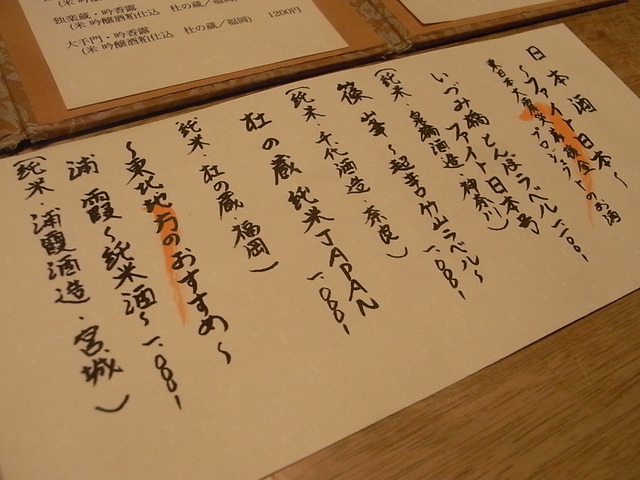 (米 吟醸酒粕仕込 杜の蔵/福岡)
独楽蔵・吟香露
(米 吟醸酒粕仕込 杜の蔵/福岡) 1200円
大手門・吟香露
(米 吟醸酒粕仕込 杜の蔵/福岡)
日本酒
〜ファイト日本〜
東日本大震災プロジェクトのお酒
いづみ橋 とんぼラベル 一、一〇〇 -
ファイト日本号
(純米・泉橋酒造・神奈川)
篠峯〜超辛口竹山ラベル〜 一、〇〇〇 -
(純米・千代酒造・奈良)
杜の蔵 純米JAPAN 一、〇〇〇 -
純米・杜の蔵・福岡)
〜東北地方のおすすめ〜
浦霞〜純米酒〜 一、〇〇〇 -
(純米・浦霞酒造・宮城)